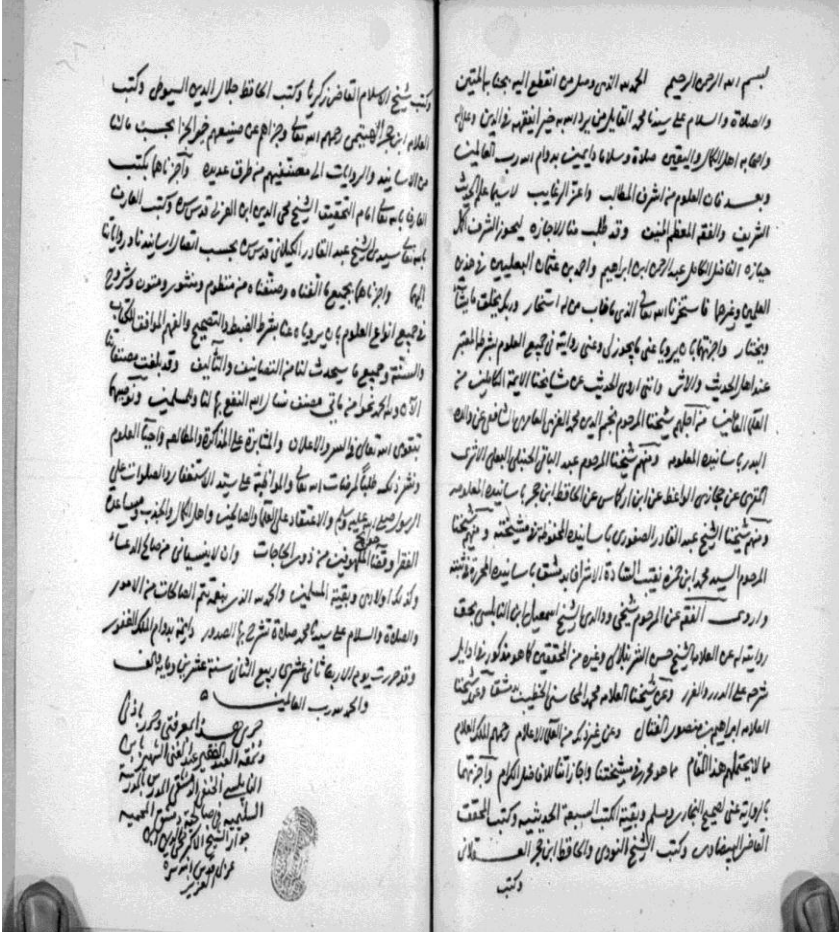 بسم الله الرحمن الرحيم الحمد لله الذي وصل من انقطع اليه بحبله المتين
والصلاة والسلام على سيدنا محمد القايل من يرد الله به خيرا يفقهه في الدين وعلى اله
واصحابه اهل الكمال واليقين صلاة وسلاما دايمين بدوام الله رب العالمين
وبعد فان العلوم من اشرف المطالب واعز الرغايب لا سيما علم الحديث
الشريف والفقه المعظم المنيف وقد طلب منا الاجازه ليحوز الشرف اكمل
حيازه الفاضل الكامل عبد الرحمن ابن ابراهيم واحمد بن عثمان البعليين في هذين
العلمين وغيرهما فاستخرنا الله تعالى الذي ما خاب من له استخار وربك يخلق ما يشآء
ويختار واجزتهما بان يرويا عني ما يجوز لي وعني روايته في جميع العلوم بشرطه المعتبر
عند اهل الحديث والاثر وانني اروي الحديث عن مشايخنا الايمة الكاملين من
العلمآء العاملين من اجلهم شيخنا المرحوم نجم الدين محمد الغزي العامري الشافعي عن والده
البدر باسانيده المعلومه ومنهم شيخنا المرحوم عبد الباقي الحنبلي البعلي الاثري
المقري عن حجازي الواعظ عن ابن اركماس عن الحافظ ابن حجر باسانيده المعلومه
ومنهم شيخنا الشيخ عبد القادر الصفوري باسانيده المحفوظة في مشيخته ومنهم شيخنا
المرحوم السيد محمد ابن حمزه نقيب السادة الاشراف بدمشق باسانيده المحررة في ثبته
واروي الفقه عن المرحوم شيخي ووالدي الشيخ اسمعيل ابن النابلسي بحق
روايته له عن العلامه الشيخ حسن الشرنبلالي وغيره من المحققين كما هو مذكور في اوايل
شرحه على الدرر والغرر وعن شيخنا العلامه محمد المحاسني الخطيب بدمشق وعن شيخنا
العلامه ابراهيم بن منصور الفتال وعن غير ذلك من العلمآء الاعلام رحمهم الملك العلام
مما لا يحتملهم هذا المقام مما هو محرر في مشيختنا واجازاتنا للافاضل الكرام واجزتهما
بالرواية عني لصحيح البخاري ومسلم وبقية الكتب السبعة الحديثيه وكتب المحقق
القاضي البيضاوي وكتب الشيخ النووي والحافظ ابن حجر العسقلاني
وكتب
وكتب شيخ الاسلام القاضي زكريا وكتب الحافظ جلال الدين السيوطي وكتب
العلامه ابن حجر الهيتمي رحمهم الله تعالى وجزاهم عن صنيعهم خير الجزا بحسب مالنا
من الاسانيد والروايات الى مصنفيهم من طرق عديده واجزناهما بكتب
العارف بالله تعالى امام التحقيق الشيخ محي الدين ابن العربي قدس سره وكتب العارف
بالله تعالى سيدي الشيخ عبد القادر الكيلاني قدس سره بحسب اتصال اسانيدنا ورواياتنا
اليهما واجزناهما بجميع ما الفناه وصنفناه من منظوم ومنثور ومتون وشروح
في جميع انواع العلوم بان يروياه عنا بشرط الضبط والتصحيح والفهم الموافق للكتاب
والسنة وجميع ما سيحدث لنا من التصانيف والتآليف وقد بلغت مصنفاتنا
الآن ولله الحمد نحوا من مأتي مصنف نسأل الله النفع بها لنا وللمسلمين ونوصيهما
بتقوى الله تعالى في السر والاعلان والمثابرة على المذاكرة والمطالعه واحيآء العلوم
ونشر ذلك طلبا لمرضات الله تعالى والمواظبة على سيد الاستغفار والصلوات على
الرسول صلى الله عليه وسلم والاعتقاد على العلمآء والصالحين واهل الكمال والجذب ومساعدة
الفقرآء وقضا حوايج الملهوفين من ذوي الحاجات وان لا ينسياني من صالح الدعآء
وكذلك اولادي وبقية المسلمين والحمد لله الذي بنعمته تتم الصالحات من الامور
والصلاة والسلام على سيدنا محمد صلاة تشرح بها الصدور دايمة بدوام الملك الغفور
وقد حررت يوم الاربعا ثاني عشري ربيع الثاني سنة عشرين وماية والف
والحمد لله رب العالمين
جرى هذا بمعرفتي وحرر باذني
ونمقه العبد الفقير عبد الغني الشهير بابن
النابلسي الحنفي الدمشقي المدرس بالمدرسة
السليميه في صالحية دمشق المحميه
جوار الشيخ الاكبر محي الدين ابن
عربي قدس الله سره
العزيز